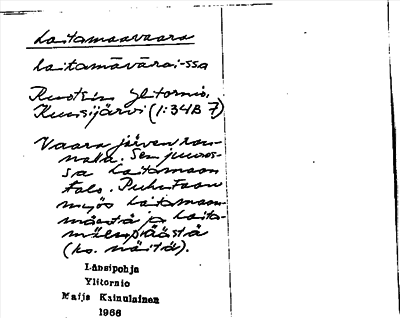 Laitamaavaara
Laitamāvāra-ssa
Ruotsin Ylitornio,
Kuusijärvi (1:34B 7)
Vaara järven ran-
nalla. Sen juures-
sa Laitamaan
talo. Puhutaan
myös Laitamaan-
mäestä ja Laita-
mäenpäästä
(ks. näitä).
Länsipohja
Ylitornio
Maija Kainulainen
1966